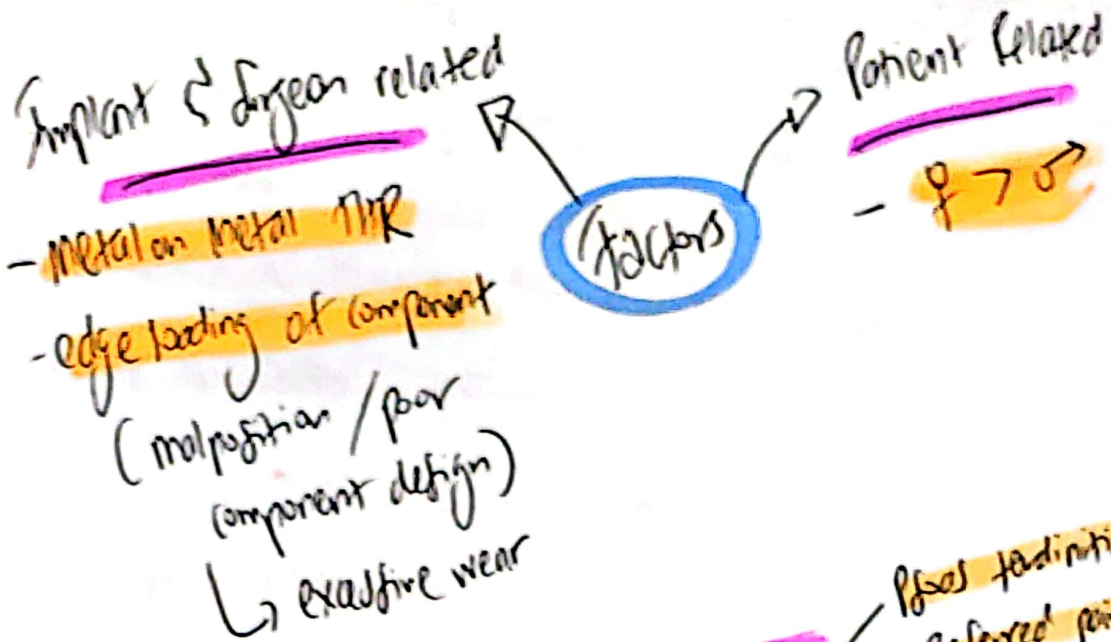 Implant & Surgeon related
- Metal on Metal THR
- edge loading of component
(malposition / poor
component design)
↳ excessive wear
Factors
Patient Related
- ♀ > ♂
Psoas tendiniti
Referred pai